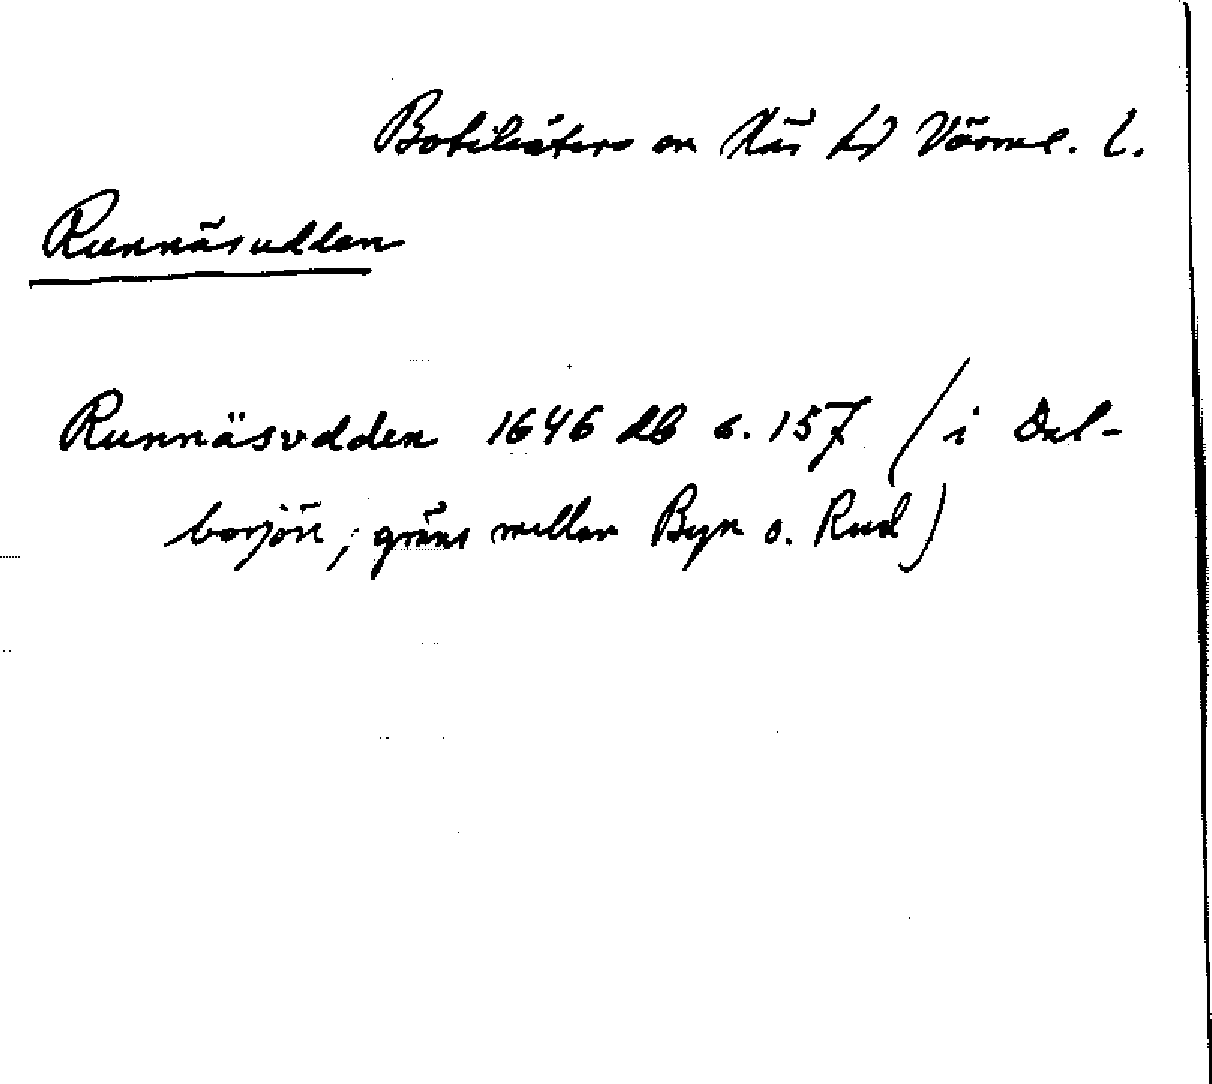 Botilsäters sn Näs hd Värml. l.
Runnäsudden
Runnäsvdden 1646 db s. 157 (i Dal-
borsjön, gräns mellan Byn o. Rud)